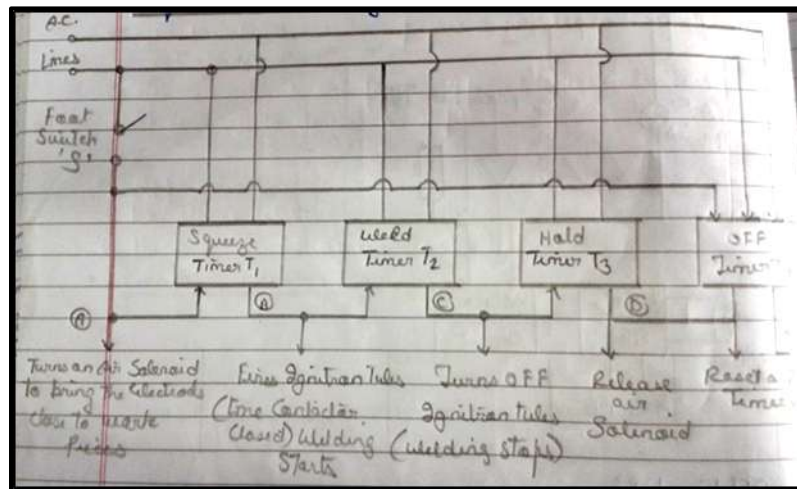 A.C.
Lines
Foot
Switch
'S'
Squeeze
Timer T1
Weld
Timer T2
Hold
Timer T3
OFF
Timer
A
A
C
D
Turns an Air Solenoid
to bring the Electrods
close to
Pieces
Fires Ignitran Tules
(Line Contactor
Closed) Welding
Starts
Turns OFF
Ignitran tules
(welding stops)
Release
air
Solenoid
Timer